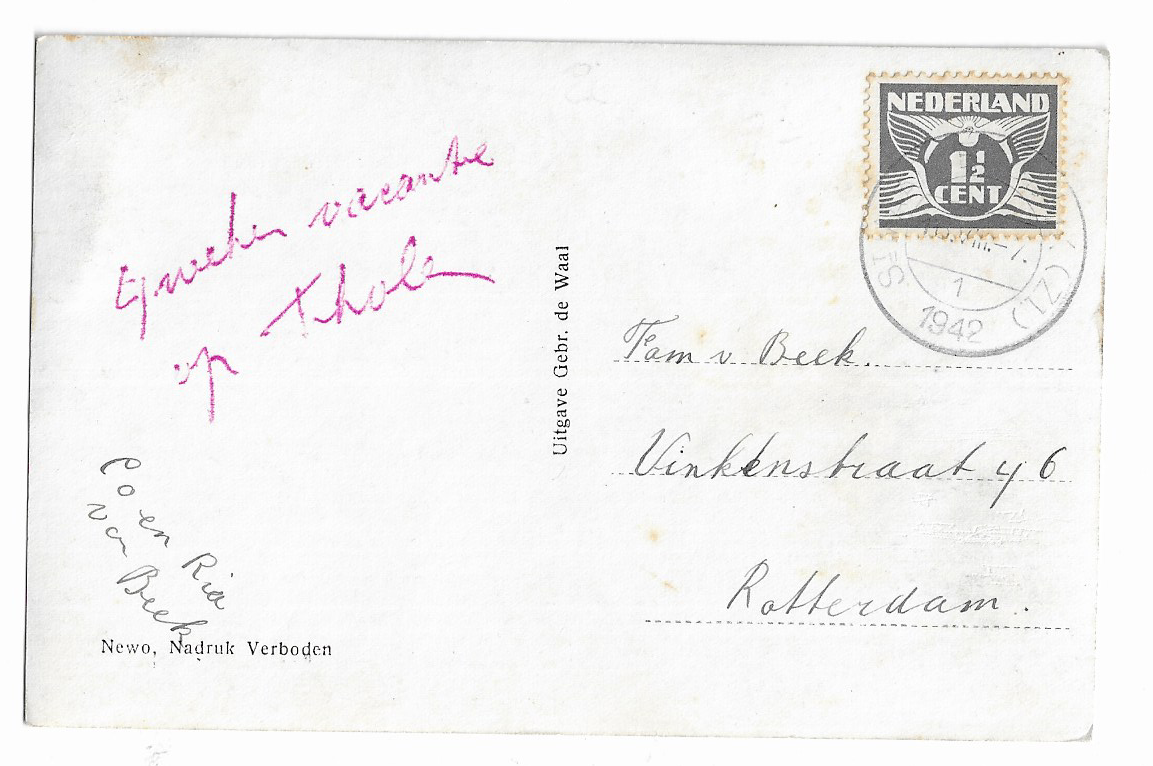 NEDERLAND
1½
CENT
1
1942
vacantie
op Tholen
Uitgave Gebr. de Waal
Fam v Beek.
Vinkenstraat 46
Rotterdam.
Co en Ria
van Beek
Newo, Nadruk Verboden